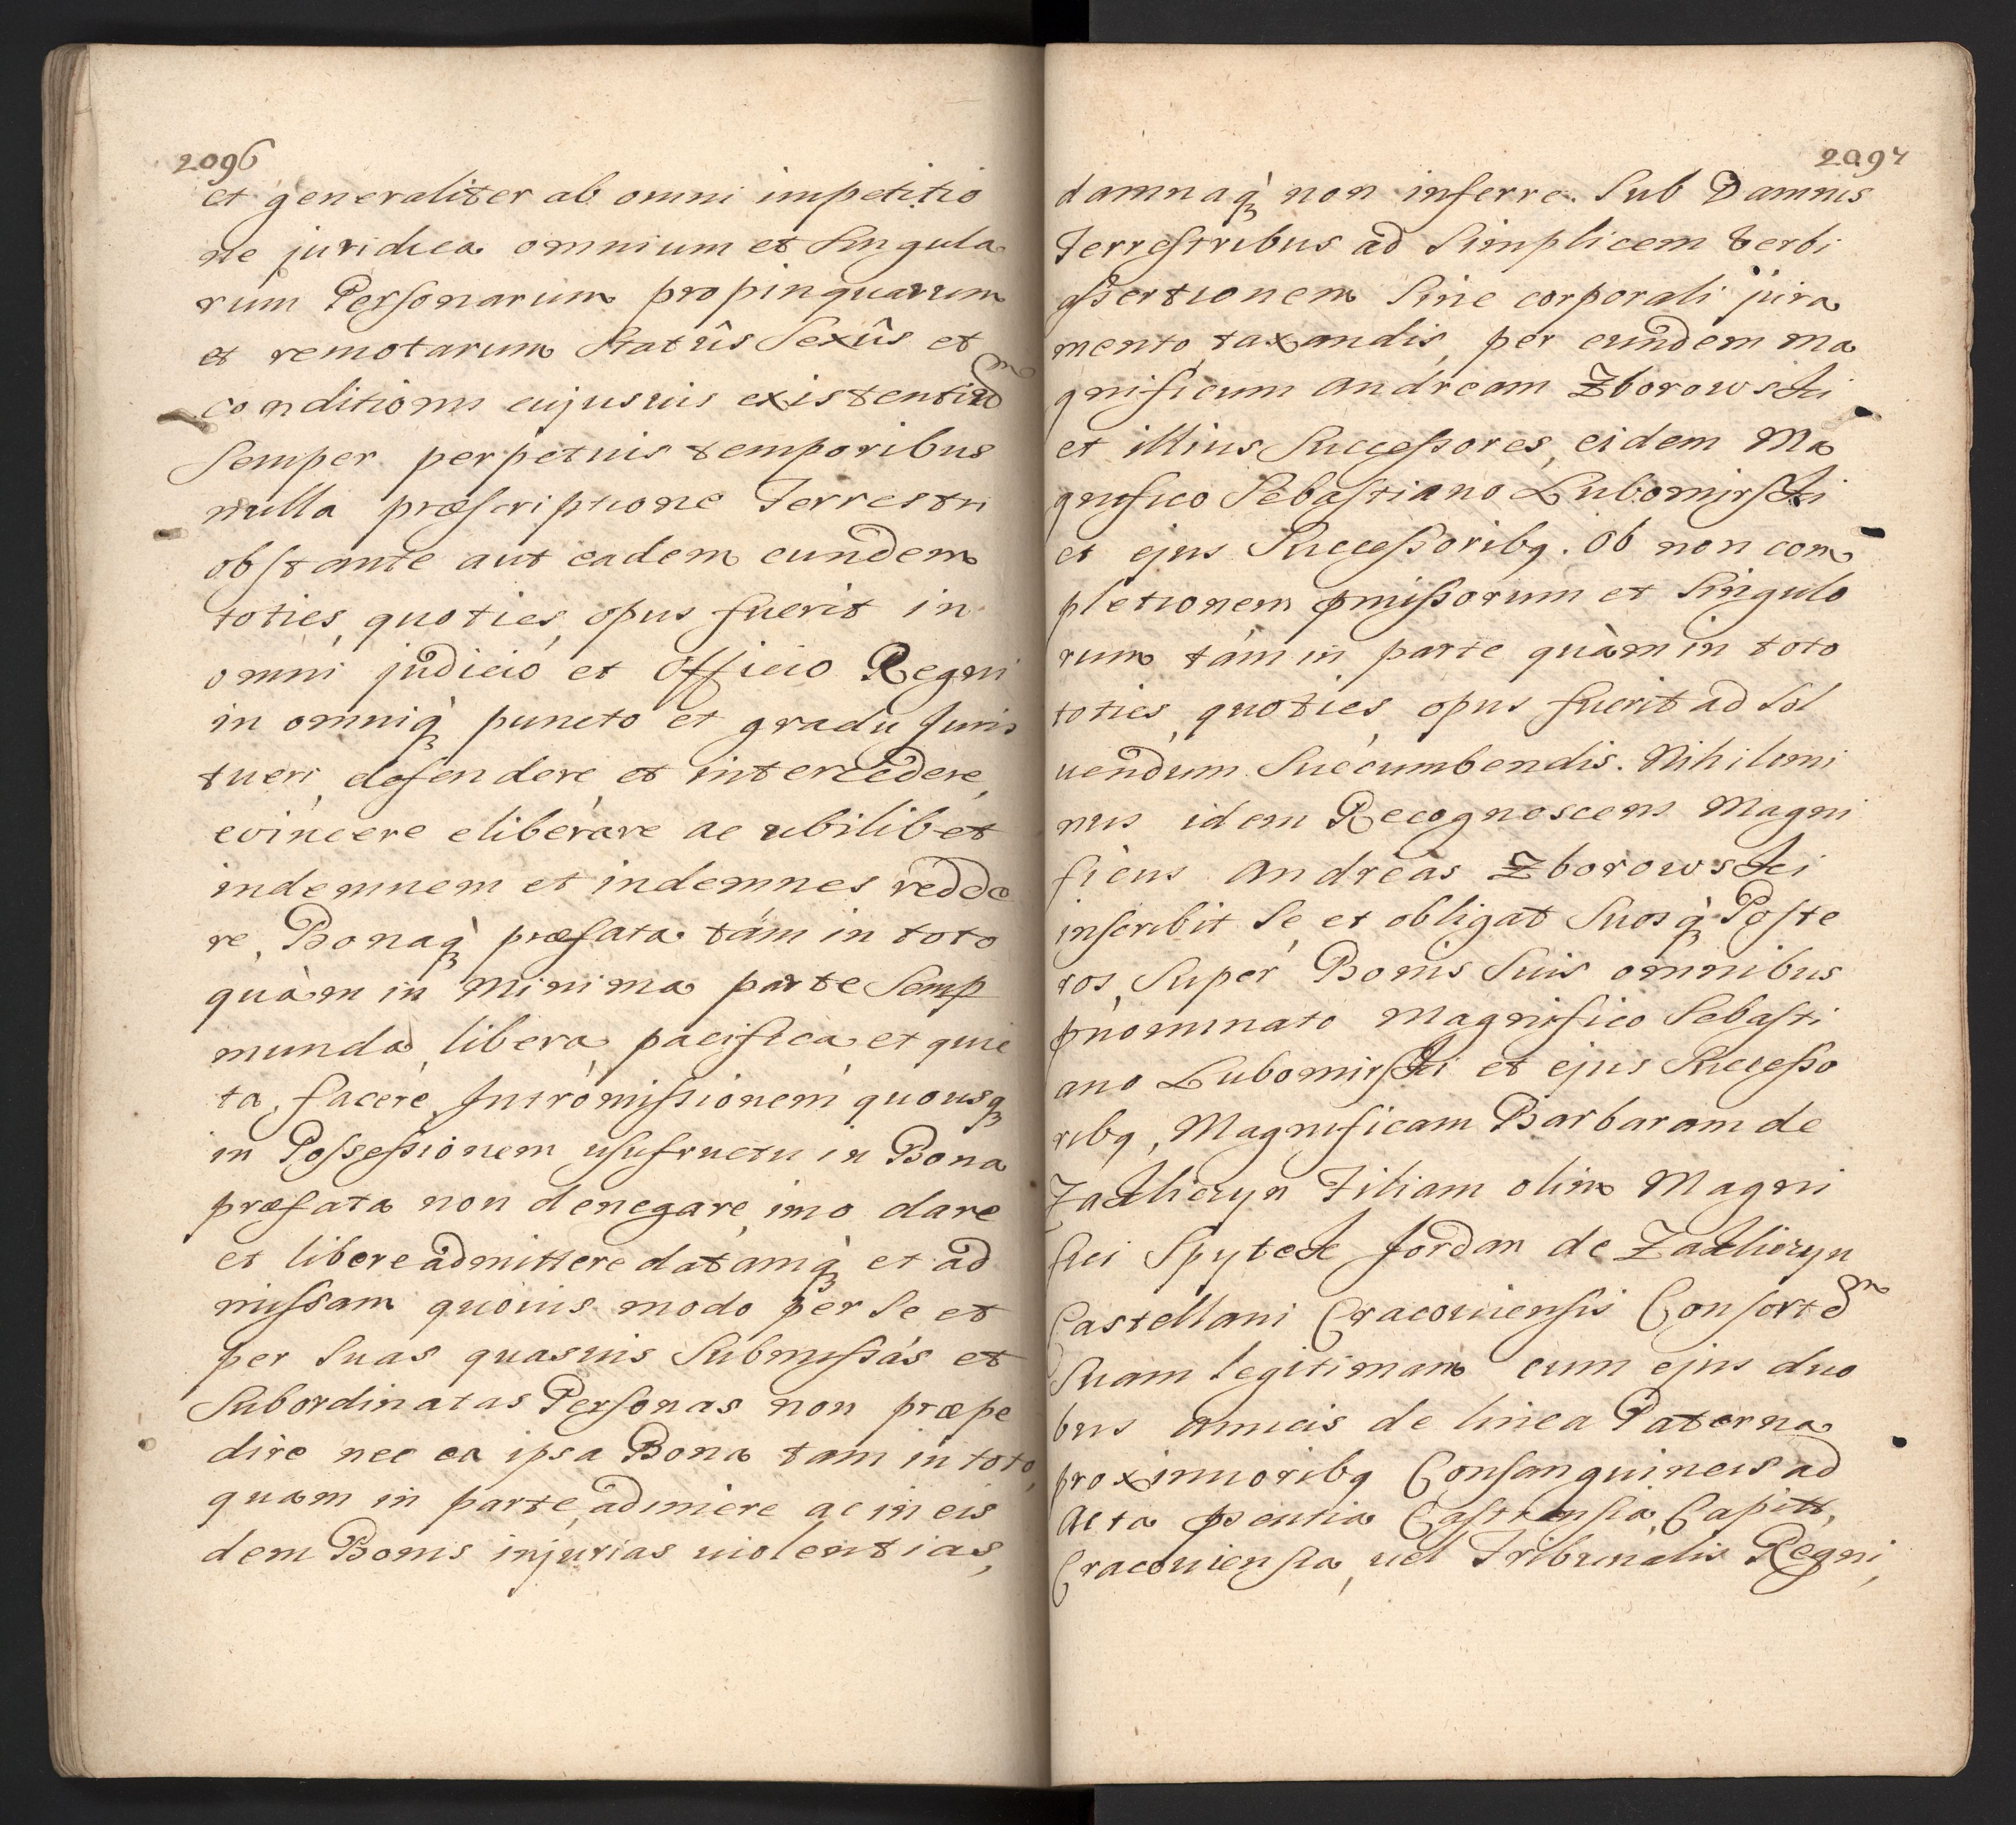 2096
et generaliter ab omni impetitio
ne juridica omnium et Singula
rum Personarum propinquarum
et remotarum Statûs Sexûs et
conditionis cujusuis existentium
Semper perpetuis temporibus
nulla præscriptione Terrestri
obstante aut eadem eundem
toties, quoties, opus fuerit in
omni judicio et Officio Regni
in omniq̀ puncto et gradu Juris
tueri, defendere, et intercedere,
evincere eliberare ac ubilibet
indemnem et indemnes redde
re, Bonaq̀ præfata tám in toto
quàm in minima parte Semp
munda, libera, pacifica, et quie
ta, facere, Intromissionem quousq
in Possessionem usufructu in Bona
præfata non denegare, imo dare
et libere admittere datamq̀ et ad
missam quouis modo per Se et
per Suas quasuis Submissas et
Subordinatas Personas non præpe
dire nec ea ipsa Bona tam in toto,
quam in parte, adimere ac in eis
dem Bonis injurias uiolentias,
2097
damnaq̀ non inferre. Sub Damnis
Terrestribus ad Simplicem Verbi
assertionem Sine corporali jura
mento, taxandis, per eundem Ma
gnificum Andream Zborowski
et illius Successores, eidem Ma
gnifico Sebastiano Lubomirski
et ejus Successoribq. Ob non com
pletionem pmissorum et Singulo
rum tám in parte quàm in toto
toties, quoties, opus fuerit ad Sol
uendum Succumbendis. Nihilomi
nus idem Recognoscens Magni
ficus Andreas Zborowski
inscribit Se, et obligat Suosq̀ Poste
ros, Super Bonis Suis omnibus
pnominato Magnifico Sebasti
ano Lubomirski et ejus Successo
ribq, Magnificam Barbaram de
Zakliczyn Filiam olim Magni
fici Spytek Jordan de Zakliczyn
Castellani Cracouiensis Consortem
Suam legitimam cum ejus duo
bus amicis de linea Paterna
proximioribq Consanguineis ad
Acta psentia Castrensia, Capitt,
Cracouiensia, uel Tribunalis Regni,